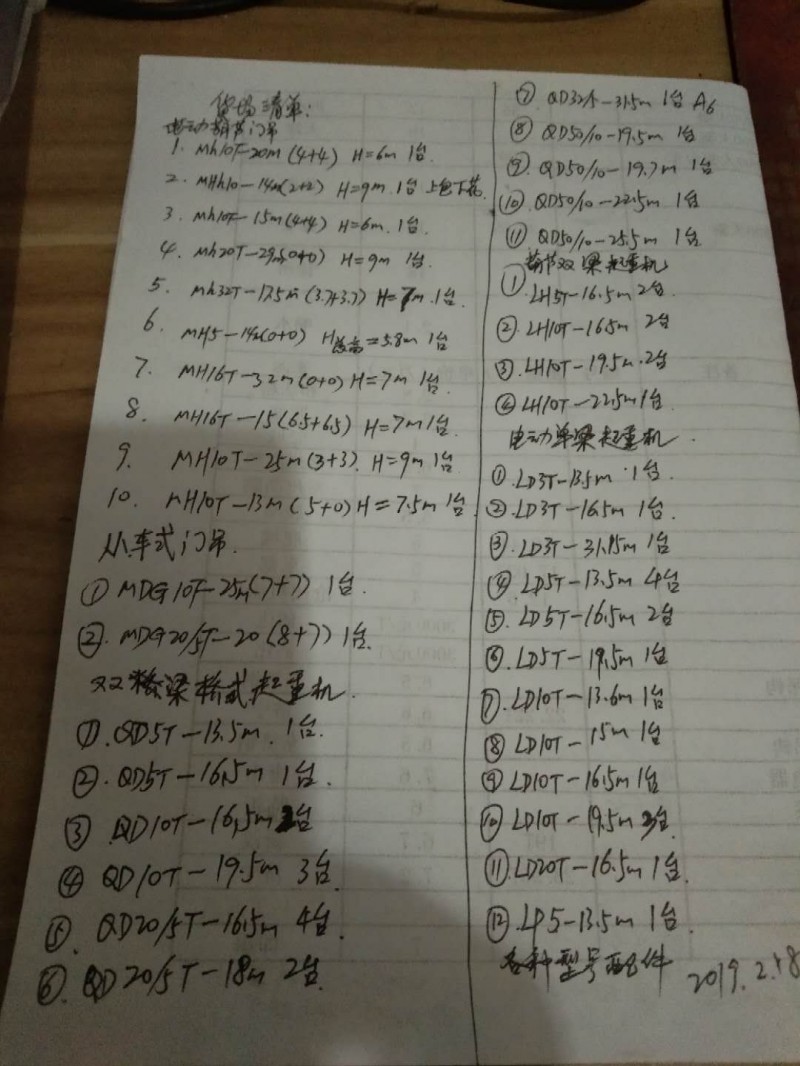 货场清单:
电动葫芦门吊
1. Mh10T-20m (4+4) H=6m 1台.
2. MHh10-14m(2+2) H=9m 1台 上包下花.
3. mh10T-15m(4+4) H=6m. 1台.
4. mh20T-29m(0+0) H=9m 1台.
5. mh32T-17.5m (3.7+3.7) H=7m. 1台.
6. MH5-14m(0+0) H总高=5.8m 1台
7. MH16T-32m(0+0) H=7m 1台.
8. MH16T-15(6.5+6.5) H=7m 1台.
9. MH10T-25m(3+3). H=9m 1台
10. MH10T-13m(5+0) H=7.5m 1台.
小车式门吊.
① MDG10T-25m(7+7) 1台.
②. MDG20/5T-20(8+7) 1台.
双梁桥式起重机.
①. QD5T-13.5m. 1台.
②. QD5T-16.5m 1台.
③ QD10T-16.5m 台
④ QD10T-19.5m 3台.
⑤. QD20/5T-16.5m 4台.
⑥. QD20/5T-18m 2台.
⑦ QD32/5-31.5m 1台 A6
⑧ QD50/10-19.5m 1台
⑨. QD50/10-19.7m 1台
⑩. QD50/10-22.5m 1台
⑪ QD50/10-25.5m 1台
葫芦双梁起重机
①. LH5T-16.5m 2台.
②. LH10T-16.5m 2台
③. LH10T-19.5m. 2台
④ LH10T-22.5m 1台.
电动单梁起重机.
①. LD3T-13.5m 1台.
②. LD3T-16.5m 1台.
③. LD3T-31.15m 1台
④ LD5T-13.5m 4台
⑤. LD5T-16.5m 2台
⑥. LD5T-19.5m 1台
⑦. LD10T-13.6m 1台
⑧ LD10T-15m 1台
⑨ LD10T-16.5m 1台
⑩ LD10T-19.5m 台.
⑪. LD20T-16.5m 1台.
⑫. LP5-13.5m 1台.
各种型号配件 2019.2.18